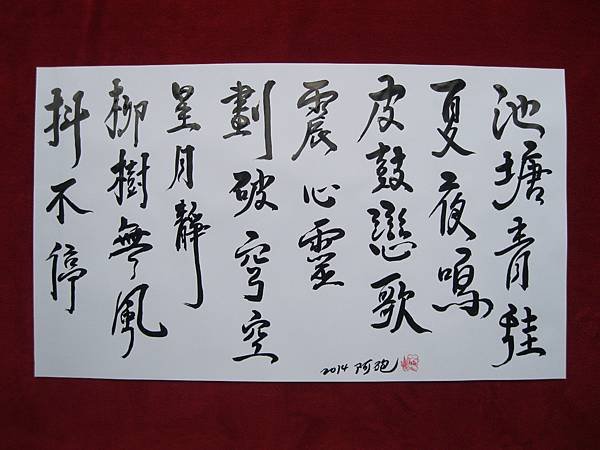 池塘青蛙
夏夜鳴
皮鼓戀歌
震心靈
劃破穹空
星月靜
柳樹無風
抖不停
2014 阿孢